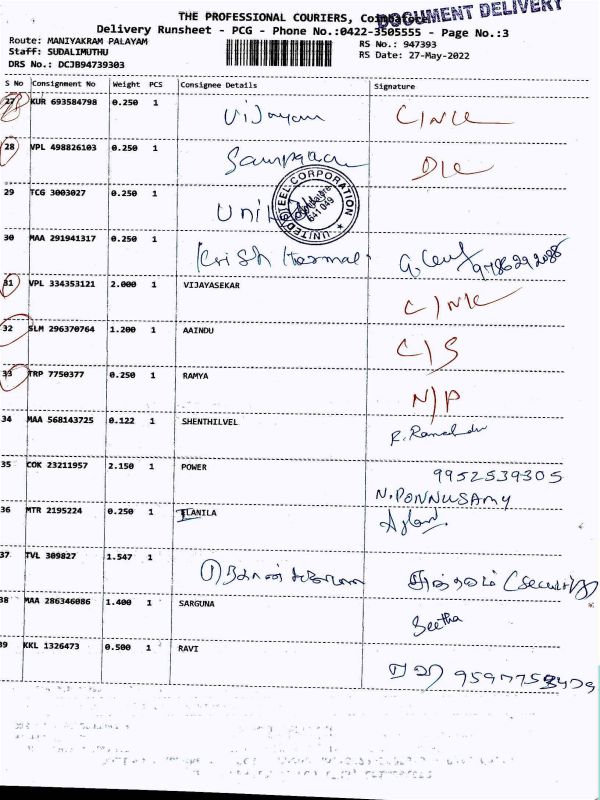 THE PROFESSIONAL COURIERS, Coimbatore
DOCUMENT DELIVERY
Delivery Runsheet - PCG - Phone No.:0422-3505555 - Page No.:3
Route: MANIYAKRAM PALAYAM
RS No.: 947393
Staff: SUDALIMUTHU
RS Date: 27-May-2022
DRS No.: DCJB94739303
S No Consignment No Weight PCS Consignee Details Signature
27 KUR 693584798 0.250 1 Vijayan C/NR
28 VPL 498826103 0.250 1 DL
29 TCG 3003027 0.250 1 UNITED STEEL CORPORATION 641 049
30 MAA 291941317 0.250 1 Krish thermal 9786292085
31 VPL 334353121 2.000 1 VIJAYASEKAR C/NR
32 SLM 296370764 1.200 1 AAINDU C/S
33 TRP 7750377 0.250 1 RAMYA N/P
34 MAA 568143725 0.122 1 SHENTHILVEL
35 COK 23211957 2.150 1 POWER 9952539305
N. PONNUSAMY
36 MTR 2195224 0.250 1 ELANILA
37 TVL 309827 1.547 1 (Security)
38 MAA 286346086 1.400 1 SARGUNA Seetha
39 KKL 1326473 0.500 1 RAVI 9597758479